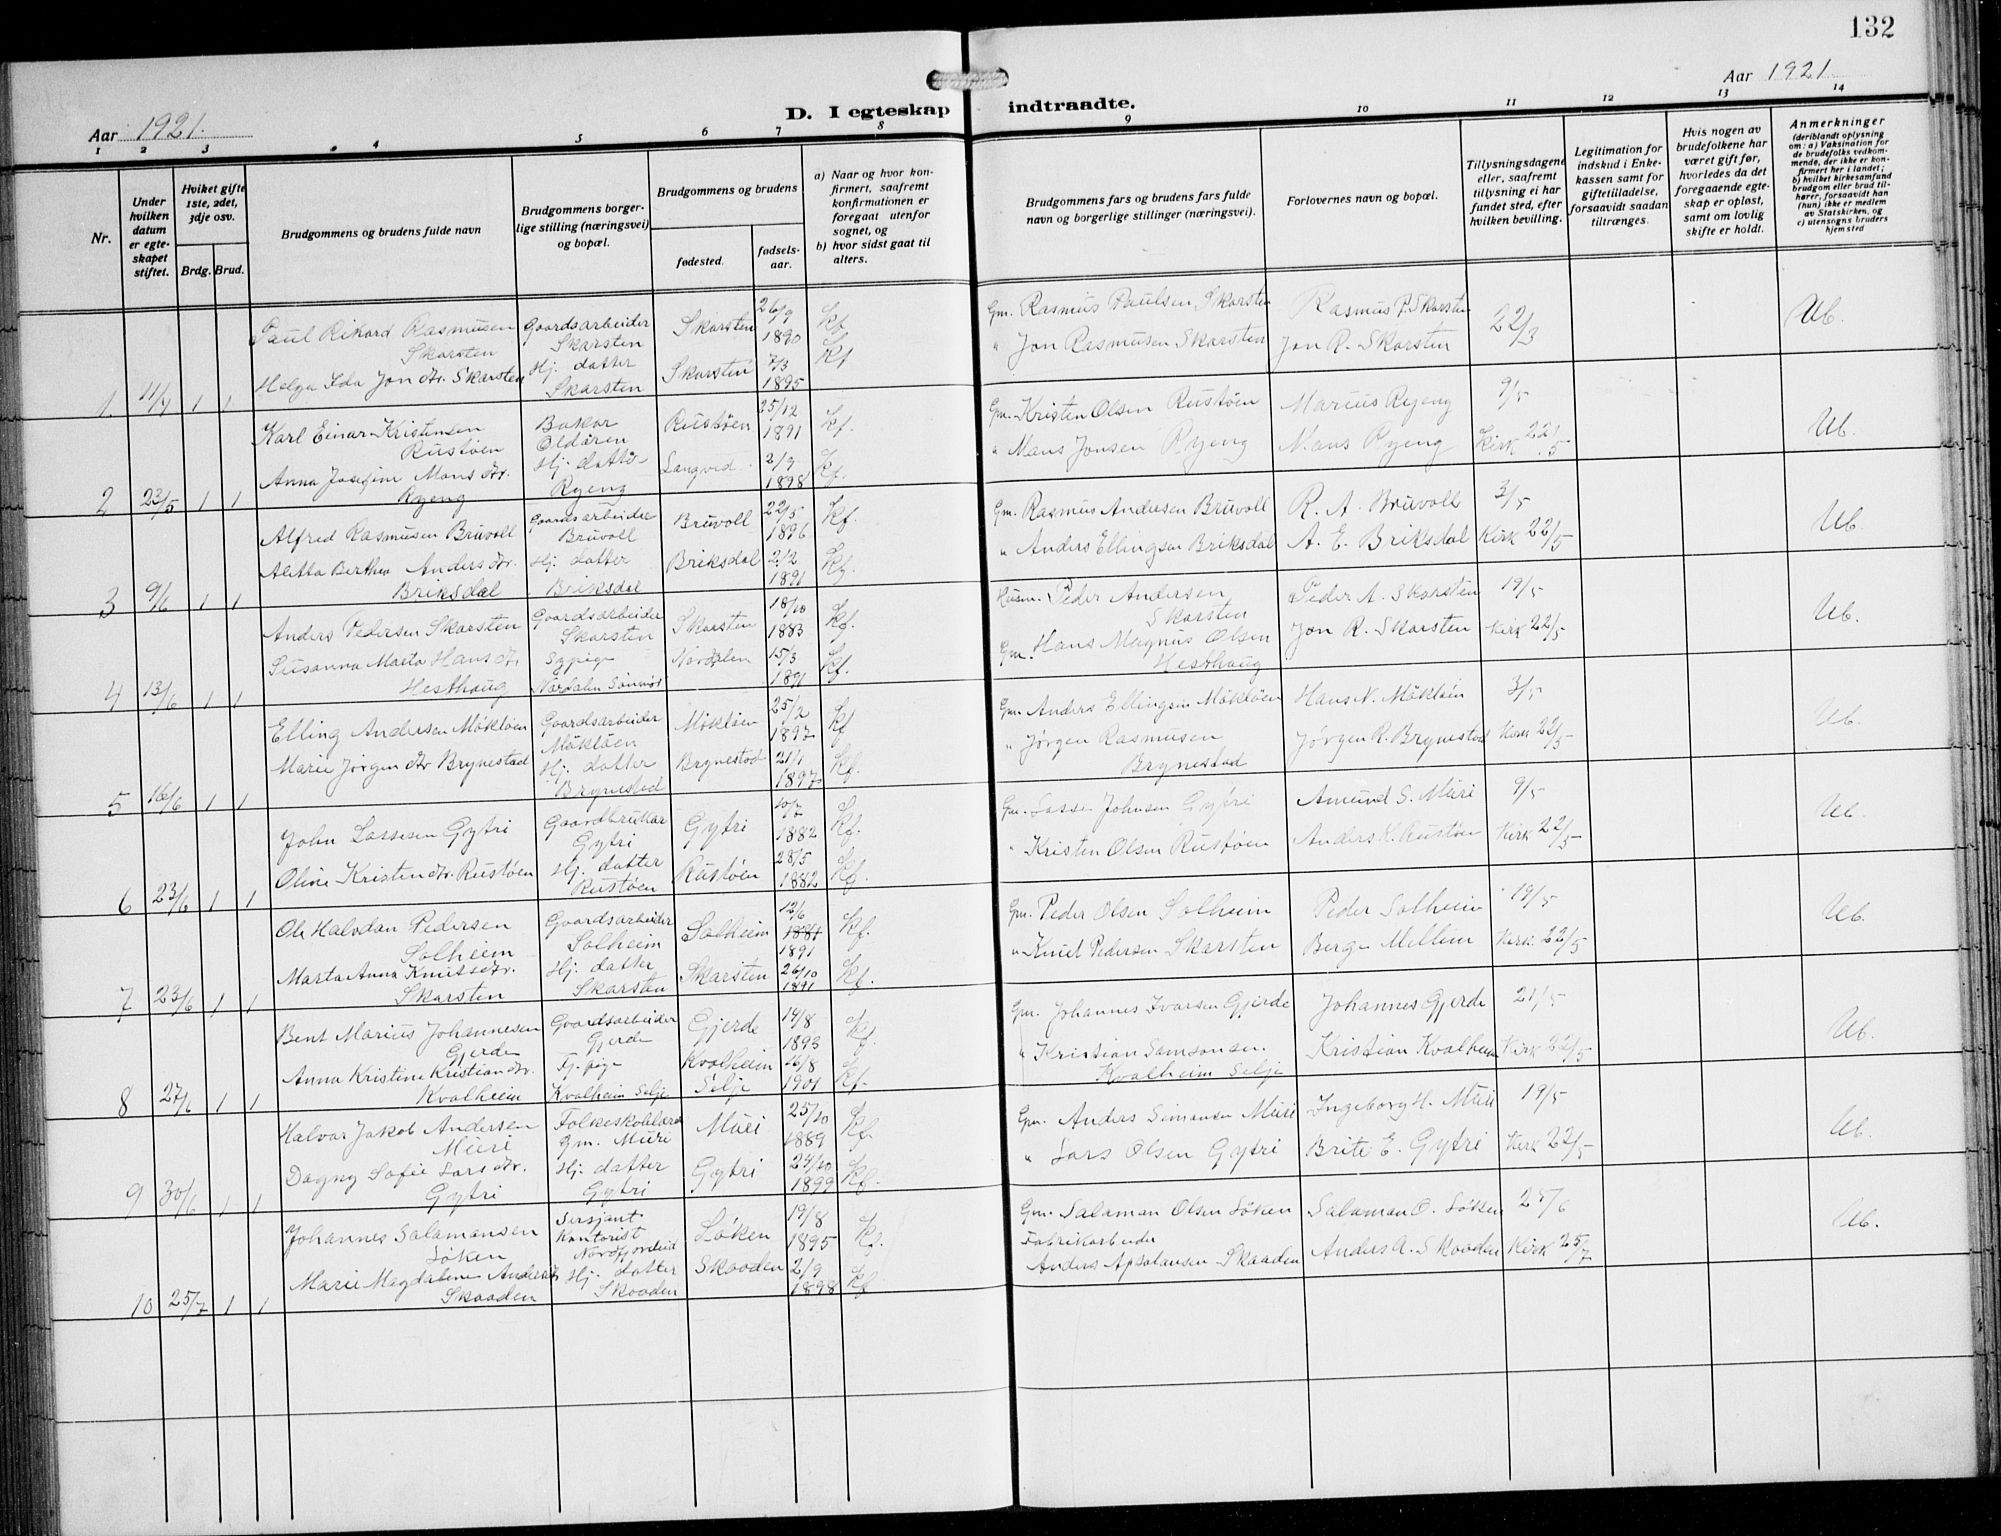 132
Aar 1921.
Aar 1921.
D. I egteskap indtraadte.
1 2 3 4 5 6 7 8 9 10 11 12 13 14
Nr.
Under hvilken datum er egteskapet stiftet.
Hviket gifte 1ste, 2det, 3dje osv.
Brdg. Brud.
Brudgommens og brudens fulde navn
Brudgommens borgerlige stilling (næringsvei) og bopæl.
Brudgommens og brudens
fødested.
fødselsaar.
a) Naar og hvor konfirmert, saafremt konfirmationen er foregaat utenfor sognet, og
b) hvor sidst gaat til alters.
Brudgommens fars og brudens fars fulde navn og borgerlige stillinger (næringsvei).
Forlovernes navn og bopæl.
Tillysningsdagene eller, saafremt tillysning ei har fundet sted, efter hvilken bevilling.
Legitimation for indskud i Enkekassen samt for giftetilladelse, forsaavidt saadan tiltrænges.
Hvis nogen av brudefolkene har været gift før, hvorledes da det foregaaende egteskap er opløst, samt om lovlig skifte er holdt.
Anmerkninger
(deriblandt oplysning om: a) Vaksination for de brudefolks vedkommende, der ikke er konfirmert her i landet; b) hvilket kirkesamfund brudgom eller brud tilhører, forsaavidt han (hun) ikke er medlem av Statskirken, og c) utensogns bruders hjemsted
1. 11/4 1 1
Paul Rikard Rasmusen Skarsten
Gaardsarbeider Skarsten
Skarsten 26/9 1890 Kf.
Gm. Rasmus Paulsen Skarsten
Rasmus P. Skarsten
22/3
Ub.
Helga Ida Jon dtr. Skarsten
Hj. datter Skarsten
Skarsten 7/3 1895 Kf
" Jon Rasmusen Skarsten
Jon R. Skarsten
2 23/5 1 1
Karl Einar Kristensen Rustöen
Baker Oldören
Rustöen 25/12 1891 Kf.
Gm. Kristen Olsen Rustöen
Marius Ryeng
9/5
Ub.
Anna Josefine Mons dtr. Ryeng
Hj. datter Ryeng
Langvid 2/9 1898 Kf.
" Mans Jonsen Ryeng
Mans Ryeng
Kirk 22/5
3 9/6 1 1
Alfred Rasmusen Bruvoll
Gaardsarbeider Bruvoll
Bruvoll 22/5 1896 Kf.
Gm. Rasmus Andersen Bruvoll
R. A. Bruvoll
3/5
Ub.
Aletta Berthea Anders dtr. Briksdal
Hj. datter Briksdal
Briksdal 2/2 1891 Kf.
" Anders Ellingsen Briksdal
A. E. Briksdal
Kirk 22/5
4 13/6 1 1
Anders Pedersen Skarsten
Gaardsarbeider Skarsten
Skarsten 18/10 1883 Kf.
Husm. Peder Andersen Skarsten
Peder A. Skarsten
19/5
Ub.
Susanna Marta Hans dtr Hesthaug
Sypige
15/3 1891 Kf.
Gm. Hans Magnus Olsen Hesthaug
Jon R. Skarsten
Kirk 22/5
5 16/6 1 1
Elling Andersen Möklöen
Gaardsarbeider Möklöen
Möklöen 25/2 1897 Kf
Gm Anders Ellingsen Möklöen
Hans N. Möklöin
3/5
Ub.
Marie Jörgen dtr Brynestad
Hj. datter Brynestad
Brynestad 21/1 1897 Kf.
" Jörgen Rasmusen Brynestad
Jörgen R. Brynestad
Kirk 22/5
6 23/6 1 1
John Lassesen Gytri
Gaardbruker Gytri
Gytri 10/7 1882 Kf.
Gm. Lasse Johnsen Gytri
Amund S. Muri
9/5
Ub.
Oline Kristen dtr. Rustöen
Hj. datter Rustöen
Rustöen 28/5 1882 Kf.
" Kristen Olsen Rustöen
Anders K. Rustöen
Kirk 22/5
7 23/6 1 1
Ole Halvdan Pedersen Solheim
Gaardsarbeider Solheim
Solheim 12/6 1881 1891 Kf.
Gm. Peder Olsen Solheim
Peder Solheim
19/5
Ub.
Marta Anna Knuts dtr. Skarsten
Hj. datter Skarsten
Skarsten 26/10 1891 Kf.
" Knut Pedersen Skarsten
Berge Mellim
Kirk. 22/5
8 27/6 1 1
Bent Marius Johannesen Gjerde
Gaardsarbeider Gjerde
Gjerde 14/8 1893 Kf.
Gm. Johannes Ivarsen Gjerde
Johannes Gjerde
21/5
Ub.
Anna Kristine Kristian dtr. Kvalheim
Tj. pige Kvalheim Selje
Kvalheim Selje 16/8 1901 Kf.
" Kristian Samsonsen Kvalheim Selje
Kristian Kvalheim
Kirk 22/5
9 30/6 1 1
Halvar Jakob Andersen Muri
Folkeskolelærer Gm. Muri
Muri 25/10 1889 Kf.
Gm. Anders Simonsen Muri
Ingeborg H. Muri
19/5
Ub.
Dagny Sofie Lars dtr. Gytri
Hj. datter Gytri
Gytri 24/10 1899 Kf.
" Lars Olsen Gytri
Brite E. Gytri
Kirk 22/5
10 25/7 1 1
Johannes Salamonsen Löken
Sersjant. Kontorist Nordfjordeid
Löken 19/8 1895 Kf.
Gm. Salaman Olsen Löken
Salaman O. Löken
25/6
Ub.
Marie Magdalene Anders dtr Skaaden
Hj. datter Skaaden
Skaaden 2/9 1898 Kf
Fabrikarbeider Anders Apsalansen Skaaden
Anders A. Skaaden
Kirk 25/7